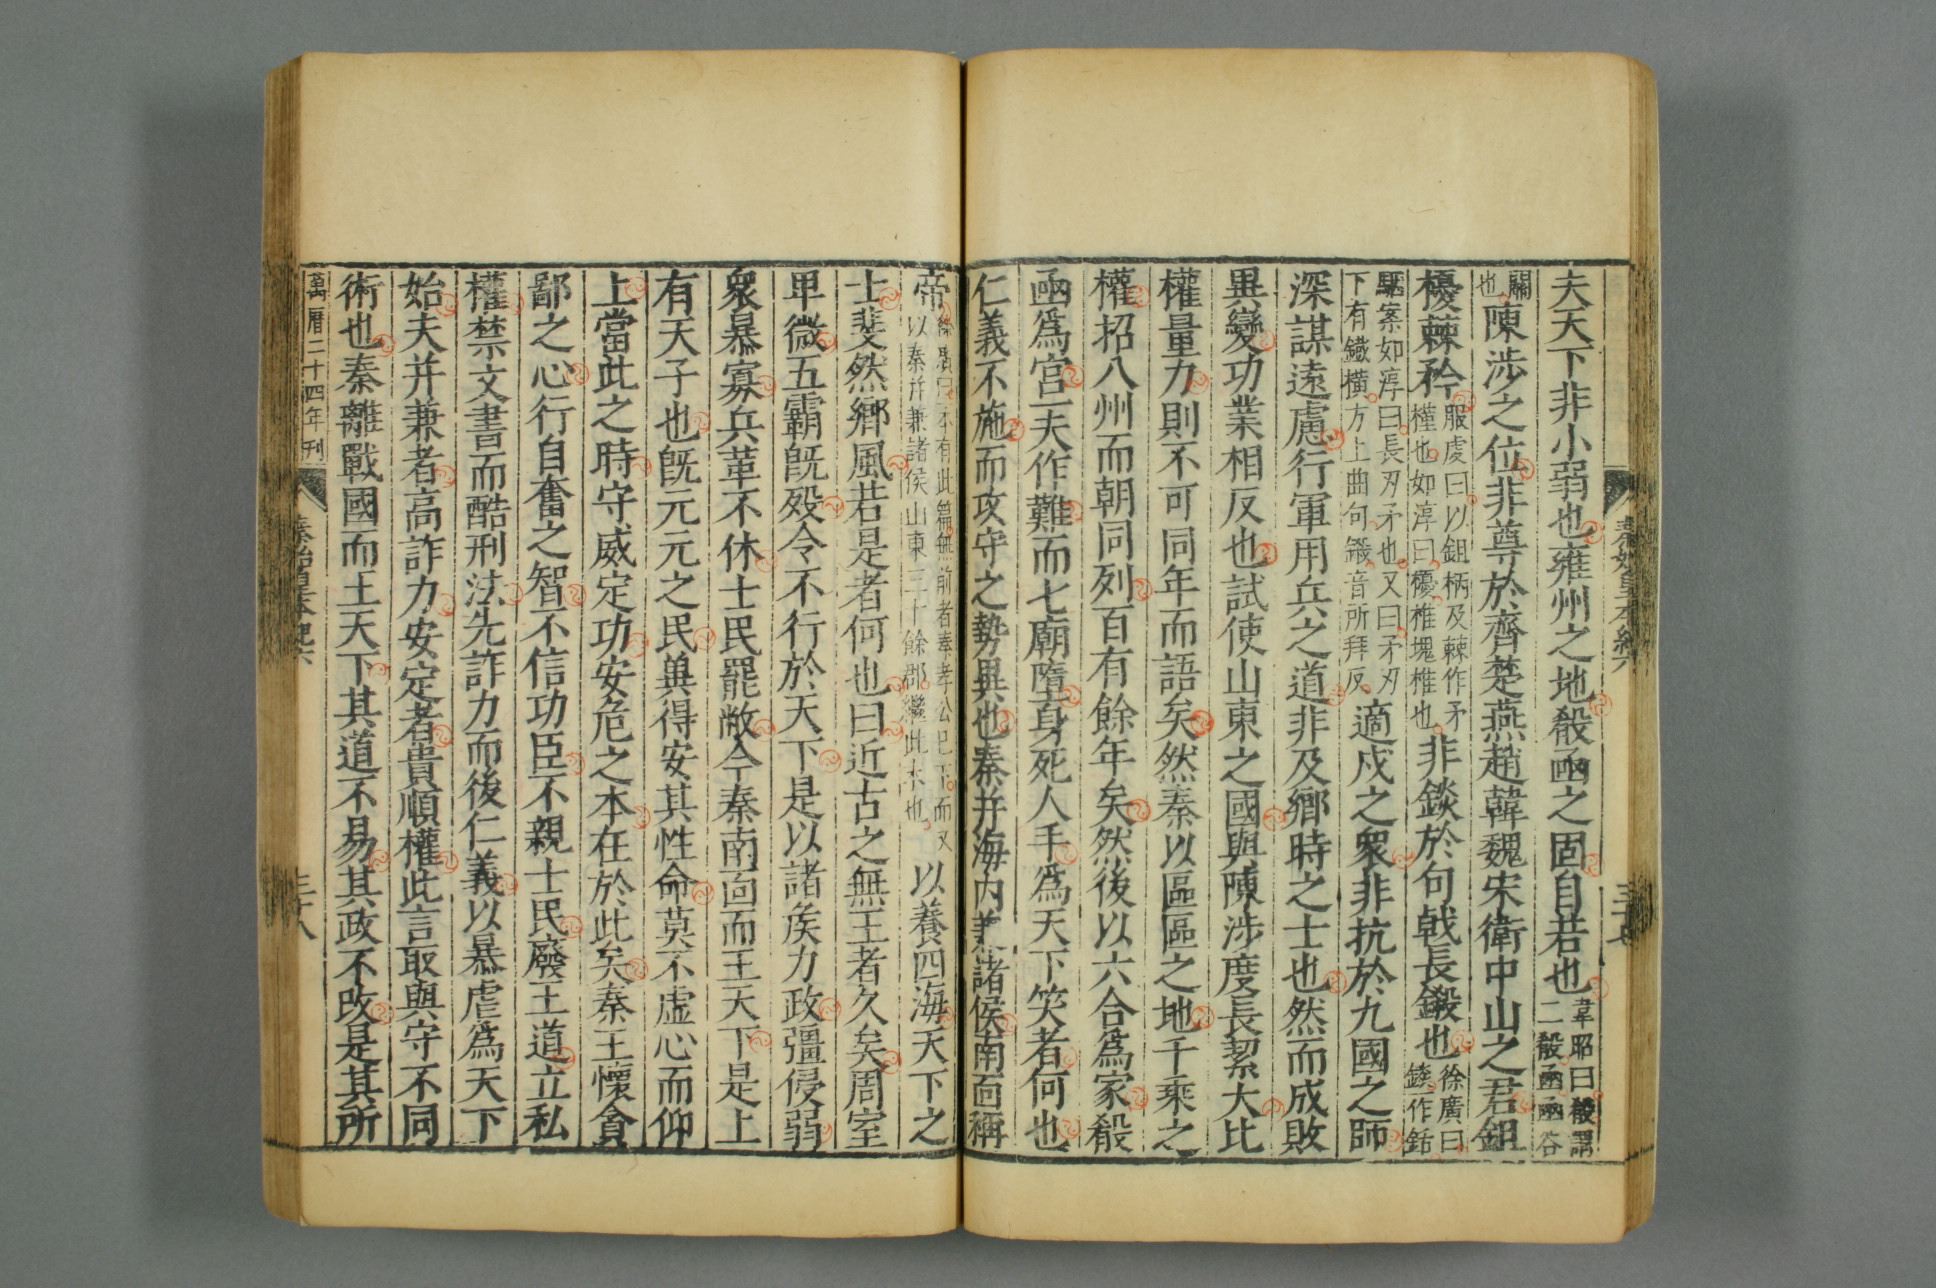 夫天下非小弱也雍州之地殽函之固自若也韋昭曰殽謂二殽函函谷
關也陳涉之位非尊於齊楚燕趙韓魏宋衛中山之君鉏
櫌棘矜服虔曰以鉏柄及棘作矛槿也如淳曰櫌椎塊椎也非錟於句戟長鎩也徐廣曰錟一作銛
駰案如淳曰長刃矛也又曰矛刃下有鐵橫方上曲句鎩音所拜反適戍之衆非抗於九國之師
深謀遠慮行軍用兵之道非及鄉時之士也然而成敗
異變功業相反也試使山東之國與陳涉度長絜大比
權量力則不可同年而語矣然秦以區區之地千乘之
權招八州而朝同列百有餘年矣然後以六合爲家殽
函爲宮一夫作難而七廟墮身死人手爲天下笑者何也
仁義不施而攻守之勢異也秦并海內兼諸侯南面稱
帝徐廣曰一本有此篇無前者秦孝公已下而又以秦并兼諸侯山東三十餘郡繼此末也以養四海天下之
士斐然鄉風若是者何也曰近古之無王者久矣周室
卑微五霸旣殁令不行於天下是以諸矦力政彊侵弱
衆暴寡兵革不休士民罷敝今秦南面而王天下是上
有天子也旣元元之民兾得安其性命莫不虛心而仰
上當此之時守威定功安危之本在於此矣秦王懷貪
鄙之心行自奮之智不信功臣不親士民廢王道立私
權禁文書而酷刑法先詐力而後仁義以暴虐爲天下
始夫并兼者高詐力安定者貴順權此言取與守不同
術也秦離戰國而王天下其道不易其政不攺是其所
萬曆二十四年刊
秦始皇本紀六
三十八